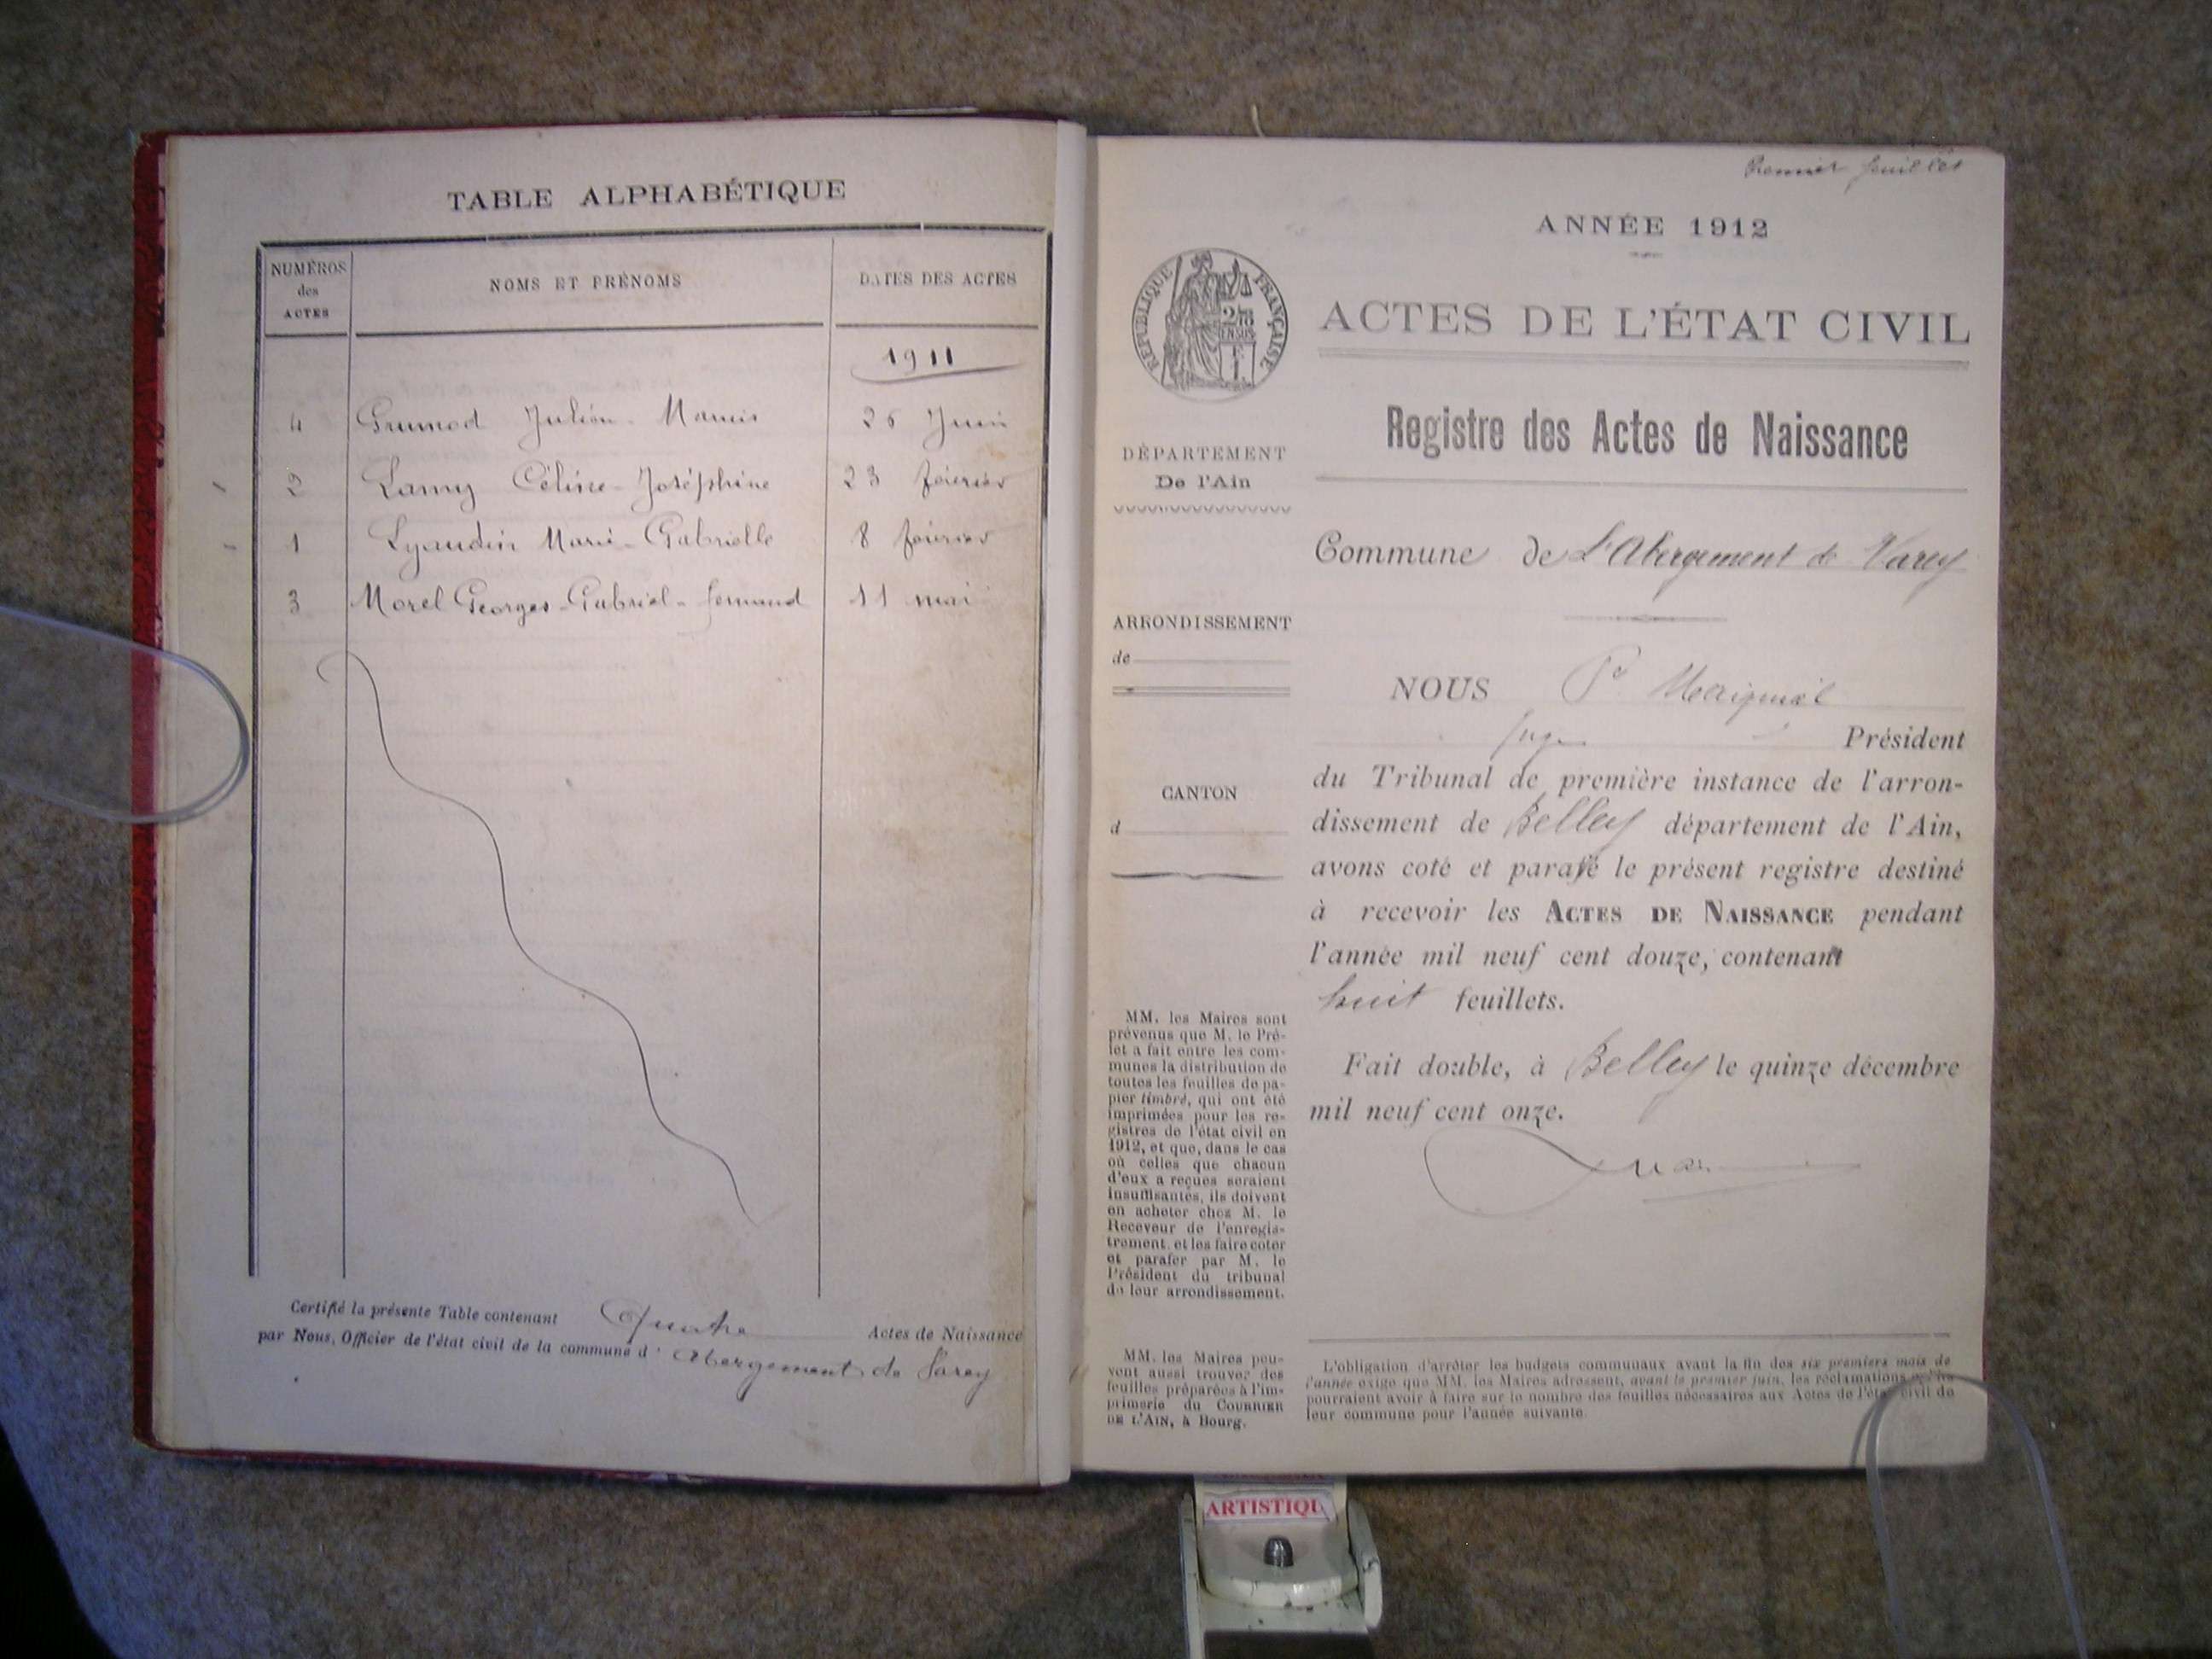 TABLE ALPHABÉTIQUE
NUMÉROS
des
ACTES
NOMS ET PRÉNOMS
DATES DES ACTES
1911
4 Grumod Julien - Marius 26 Juin
2 Lamy Céline - Joséphine 23 février
1 Lyaudin Marie - Gabrielle 8 février
3 Morel Georges - Gabriel - fernand 11 mai
Certifié la présente Table contenant Quatre Actes de Naissance
par Nous, Officier de l'état civil de la commune d' Abergement de Varey
Premier feuillet
ANNÉE 1912
RÉPUBLIQUE FRANÇAISE
ACTES DE L'ÉTAT CIVIL
Registre des Actes de Naissance
DÉPARTEMENT
De l'Ain
Commune de L'Abergement de Varey
ARRONDISSEMENT
de
CANTON
d
NOUS
Juge Président
du Tribunal de première instance de l'arron-
dissement de Belley département de l'Ain,
avons coté et parafé le présent registre destiné
à recevoir les ACTES DE NAISSANCE pendant
l'année mil neuf cent douze, contenant
huit feuillets.
Fait double, à Belley le quinze décembre
mil neuf cent onze.
MM. les Maires sont
prévenus que M. le Pré-
fet a fait entre les com-
munes la distribution de
toutes les feuilles de pa-
pier timbré, qui ont été
imprimées pour les re-
gistres de l'état civil en
1912, et que, dans le cas
où celles que chacun
d'eux a reçues seraient
insuffisantes, ils doivent
en acheter chez M. le
Receveur de l'enregis-
trement, et les faire coter
et parafer par M. le
Président du tribunal
de leur arrondissement.
MM. les Maires peu-
vent aussi trouver des
feuilles préparées à l'im-
primerie du COURRIER
DE L'AIN, à Bourg.
L'obligation d'arrêter les budgets communaux avant la fin des six premiers mois de
l'année exige que MM. les Maires adressent, avant le premier juin, les réclamations qu'ils
pourraient avoir à faire sur le nombre des feuilles nécessaires aux Actes de l'état civil de
leur commune pour l'année suivante.
ARTISTIQU